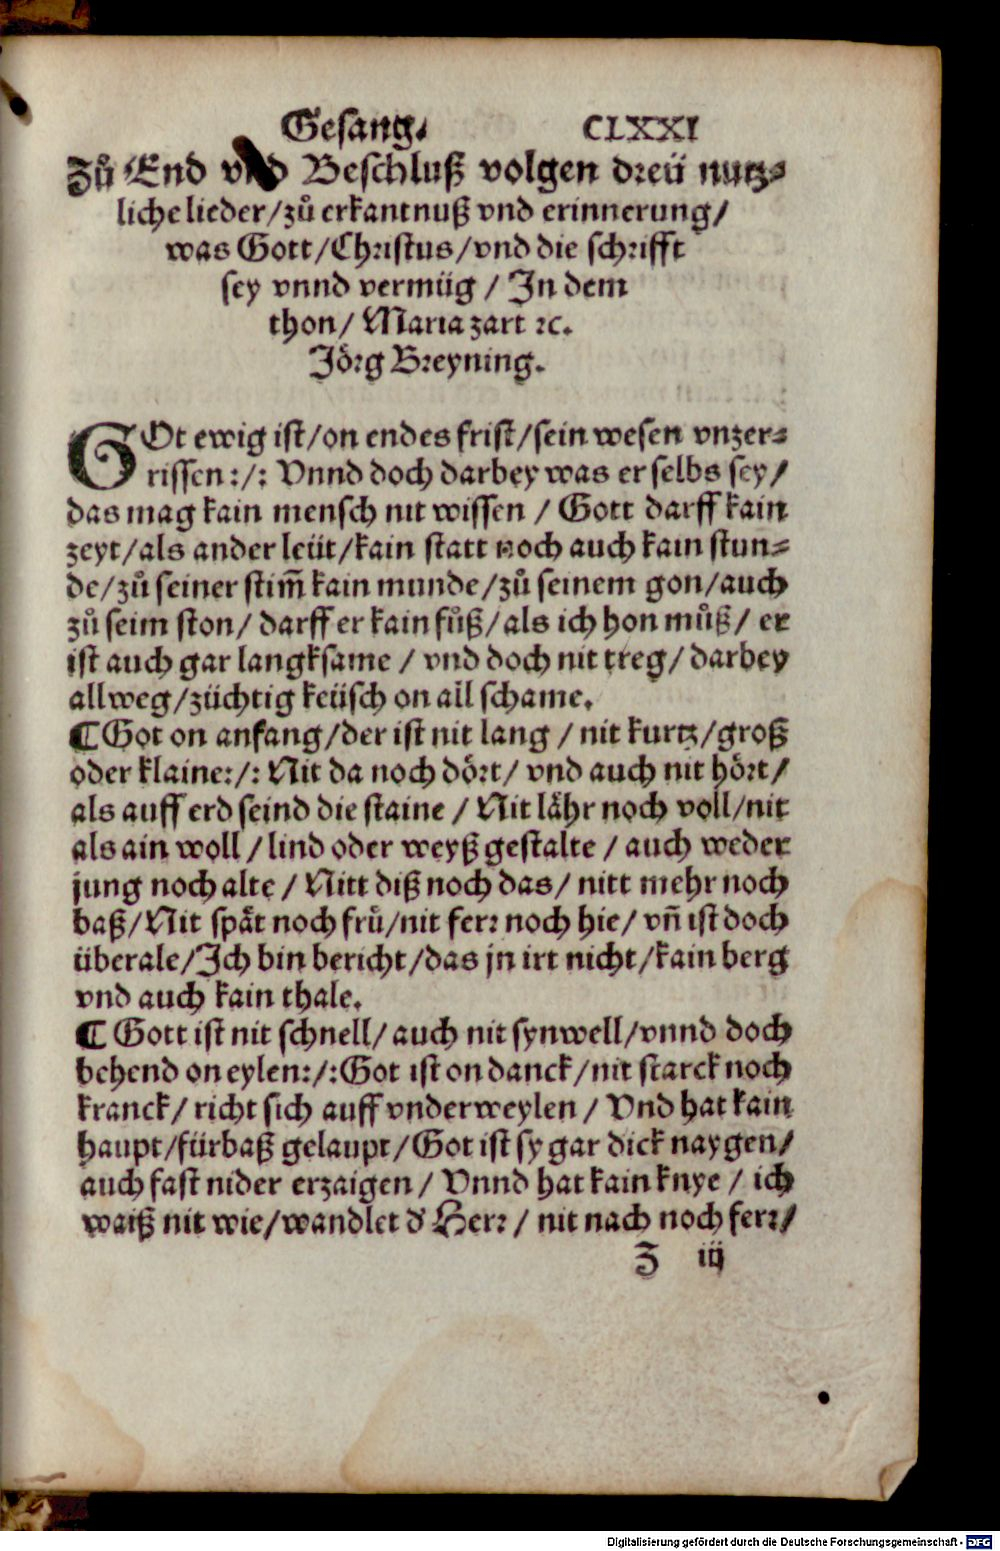 Gesang. CLXXI
Zů End vnd Beschluß volgen dreü nutz⸗
liche lieder/zů erkantnuß vnd erinnerung/
was Gott/Christus/vnd die schrifft
sey vnnd vermüg / In dem
thon/ Maria zart ꝛc.
Jörg Breyning.
GOt ewig ist/on endes frist/sein wesen vnzer⸗
rissen:/: Vnnd doch darbey was er selbs sey/
das mag kain mensch nit wissen / Gott darff kain
zeyt/als ander leüt/kain statt noch auch kain stun⸗
de/zů seiner stim̃ kain munde/zů seinem gon/auch
zů seim ston/ darff er kain fůß/als ich hon můß/ er
ist auch gar langksame / vnd doch nit treg/ darbey
allweg/züchtig keüsch on all schame.
¶Got on anfang/der ist nit lang / nit kurtz/groß
oder klaine:/: Nit da noch dört/ vnd auch nit hört/
als auff erd seind die staine / Nit lähr noch voll/nit
als ain woll / lind oder weyß gestalte / auch weder
jung noch alte / Nitt diß noch das/ nitt mehr noch
baß/Nit spät noch frů/nit ferr noch hie/ vñ ist doch
überale/Ich bin bericht/das jn irt nicht/kain berg
vnd auch kain thale.
¶ Gott ist nit schnell/ auch nit synwell/vnnd doch
behend on eylen:/:Got ist on danck/nit starck noch
kranck/ richt sich auff vnderweylen / Vnd hat kain
haupt/fürbaß gelaupt/Got ist sy gar dick naygen/
auch fast nider erzaigen / Vnnd hat kain knye / ich
waiß nit wie/wandlet d' Herr / nit nach noch ferr/
Z iij
Digitalisierung gefördert durch die Deutsche Forschungsgemeinschaft - DFG